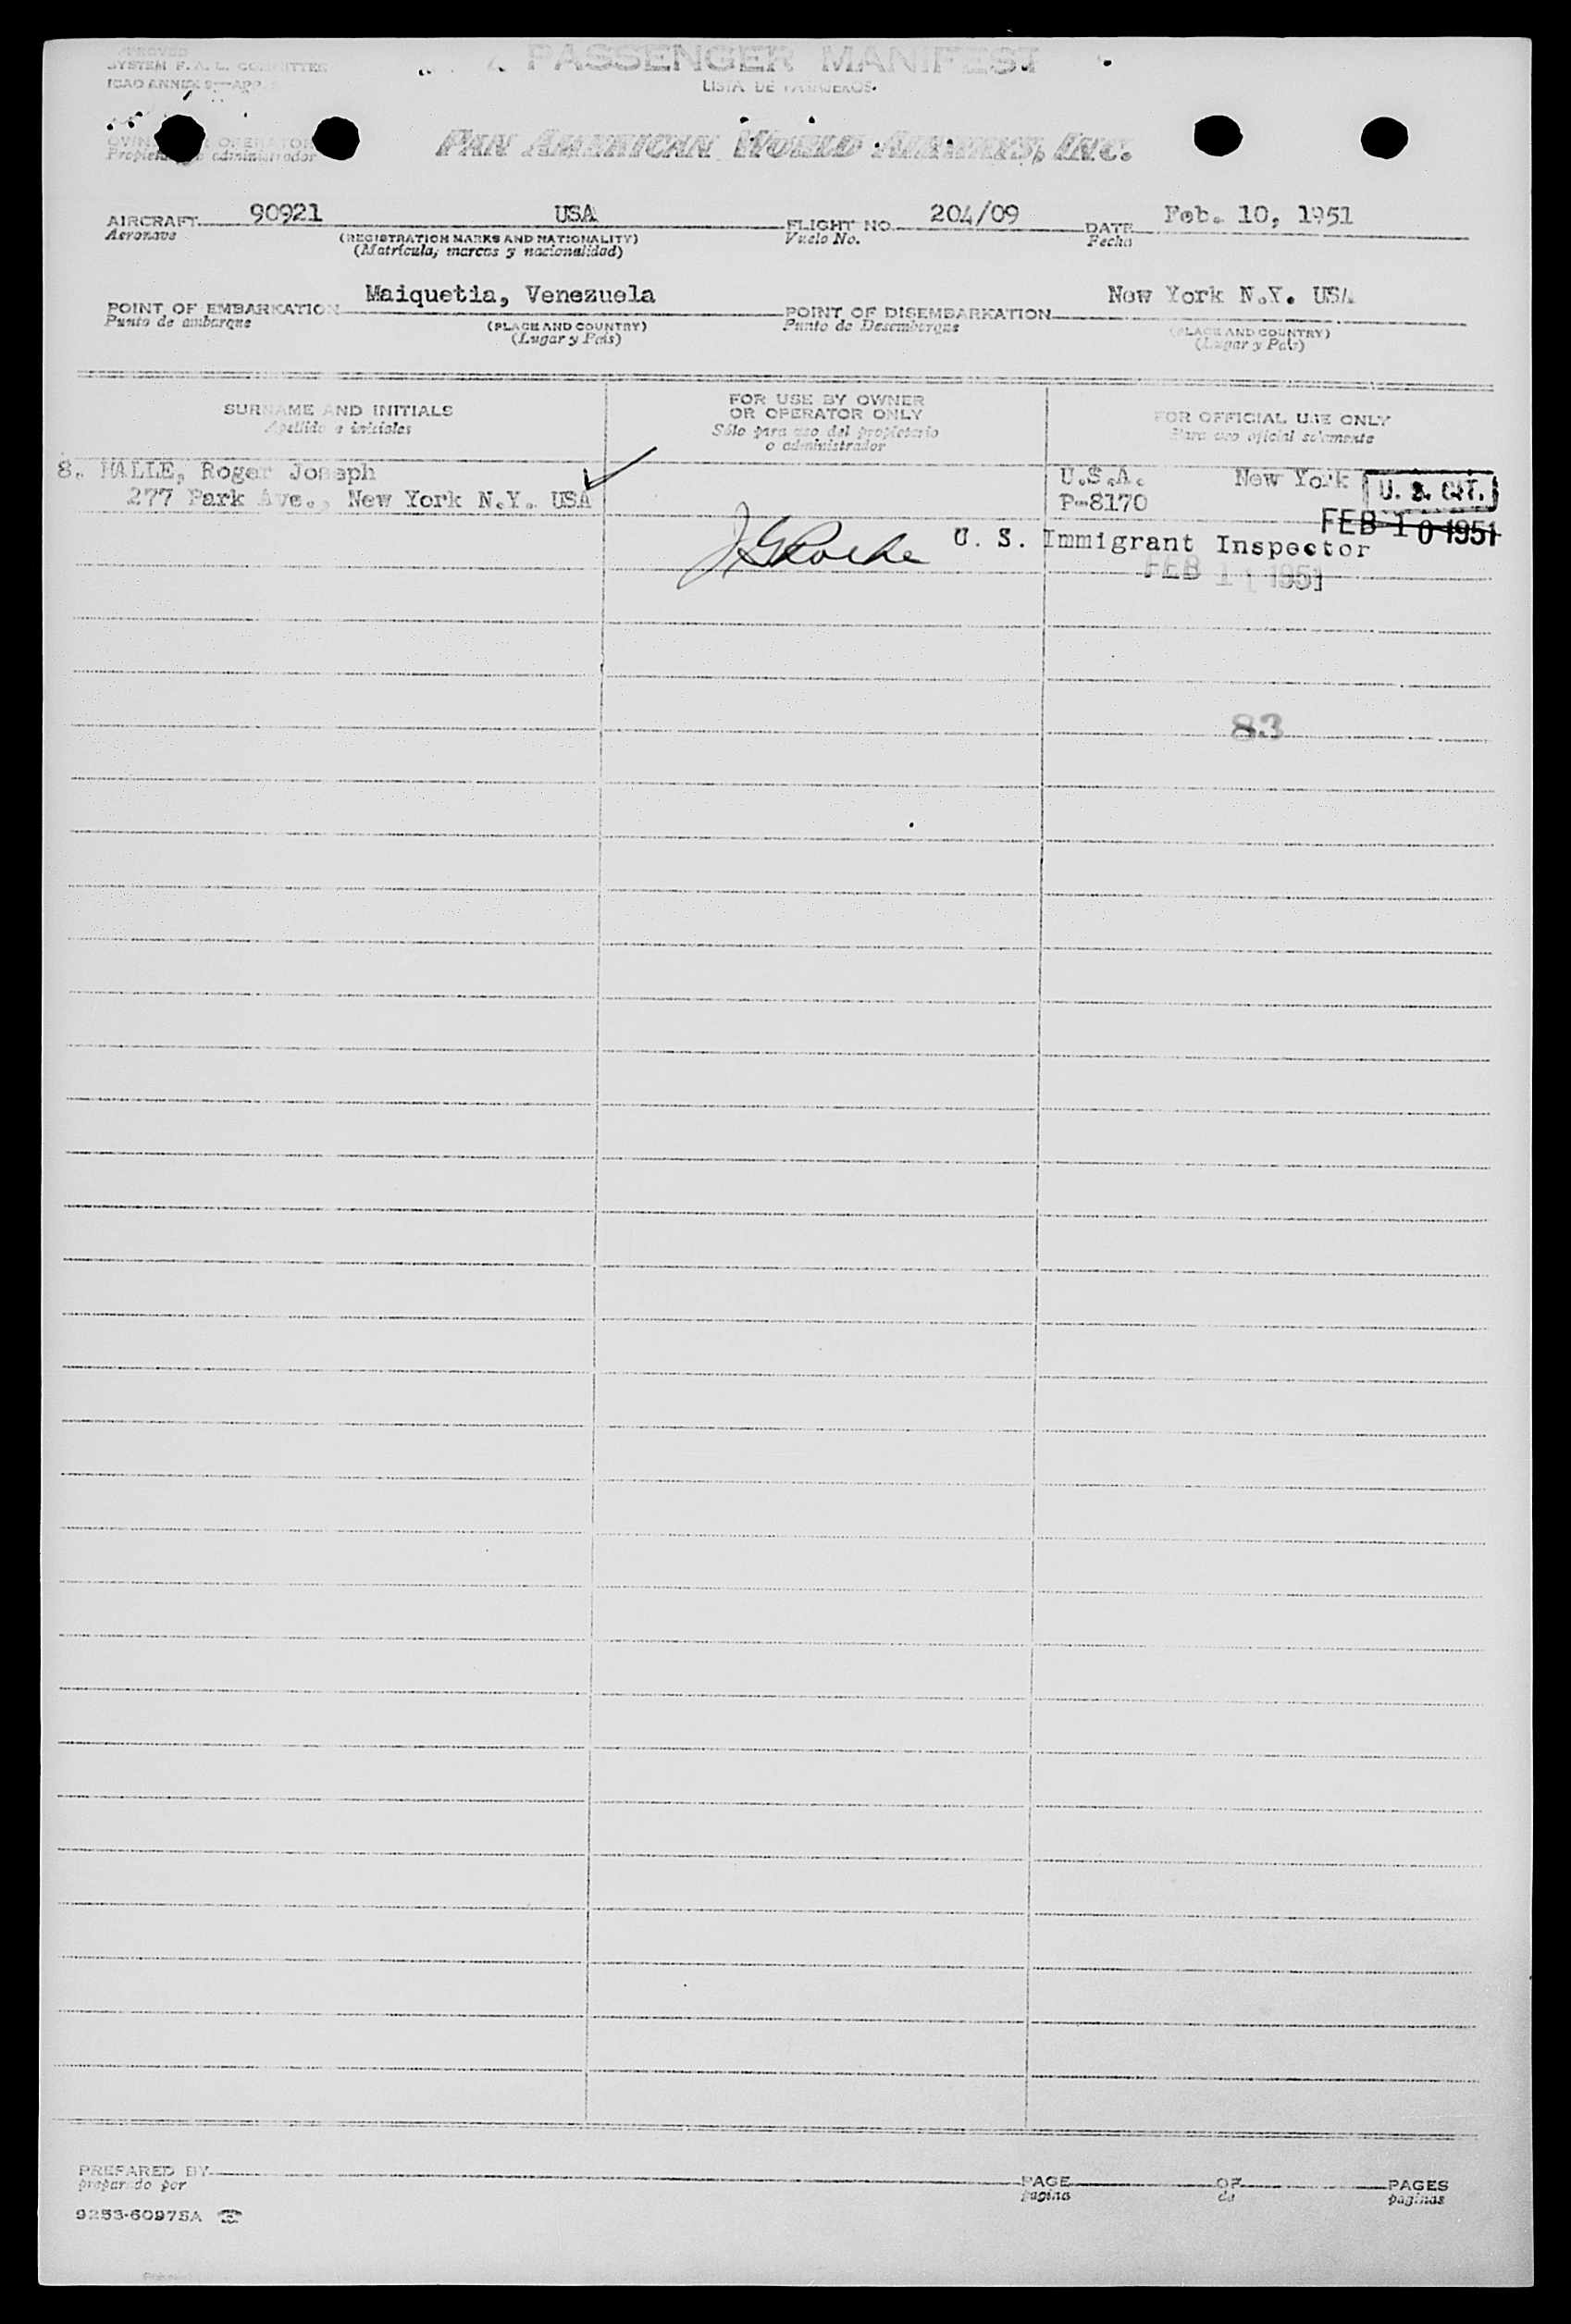 APPROVED
SYSTEM F.A.L. COMMITTEE
ICAO ANNEX 9—APP
PASSENGER MANIFEST
LISTA DE PASAJEROS
OWNER OR OPERATOR
Propietario o administrador
PAN AMERICAN WORLD AIRWAYS, INC.
AIRCRAFT 90921 USA FLIGHT NO. 204/09 DATE Feb. 10, 1951
Aeronave (REGISTRATION MARKS AND NATIONALITY) Vuelo No. Fecha
(Matrícula, marcas y nacionalidad)
POINT OF EMBARKATION Maiquetia, Venezuela POINT OF DISEMBARKATION New York N.Y. USA
Punto de embarque (PLACE AND COUNTRY) Punto de Desembarque (PLACE AND COUNTRY)
(Lugar y País) (Lugar y País)
SURNAME AND INITIALS FOR USE BY OWNER OR OPERATOR ONLY FOR OFFICIAL USE ONLY
Apellido e iniciales Sólo para uso del propietario o administrador Para uso oficial solamente
8. HALLE, Roger Joseph U.S.A. New York U. S. CIT.
277 Park Ave., New York N.Y. USA P-8170
FEB 10 1951
U. S. Immigrant Inspector
FEB 11 1951
83
PREPARED BY PAGE OF PAGES
preparado por pagina de paginas
9253-60975A